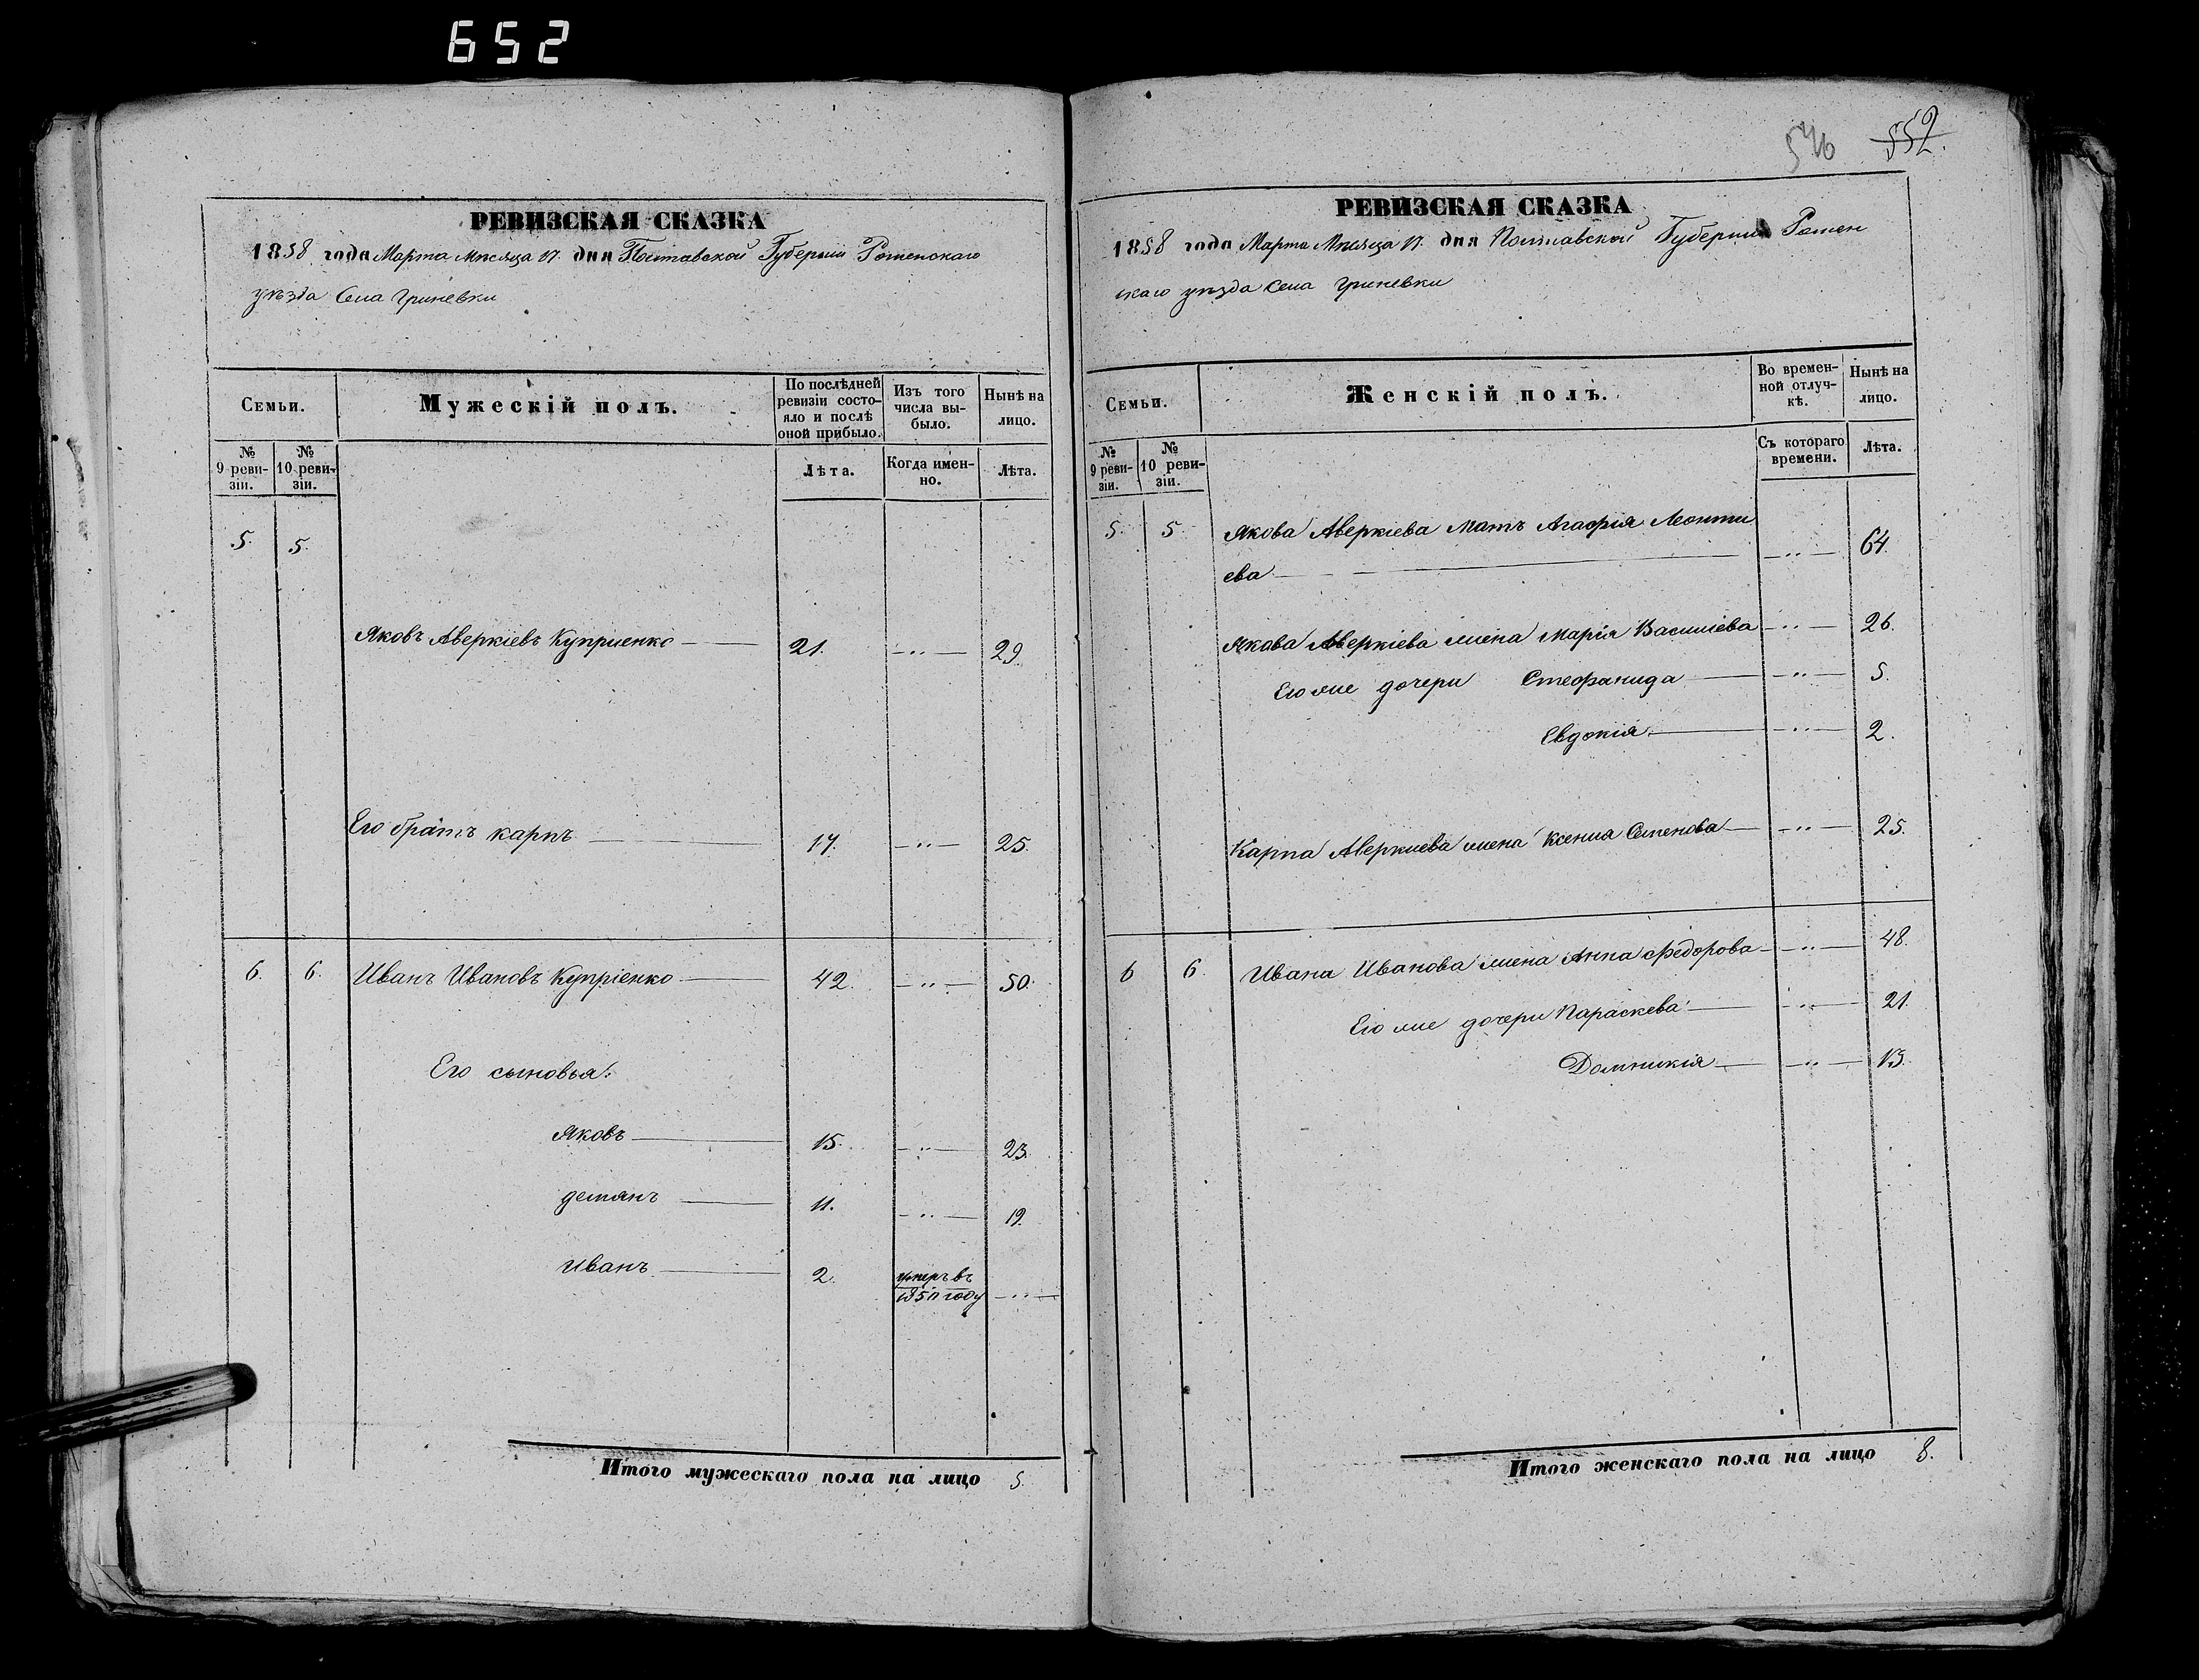 652
РЕВИЗСКАЯ СКАЗКА
1858 года Марта Мѣсяца 17. дня Полтавской Губерніи Роменскаго
уѣзда Села Гриневки
Семьи.
Мужескій полъ.
По послѣдней ревизіи состояло и послѣ оной прибыло.
Изъ того числа выбыло.
Нынѣ на лицо.
№ 9 ревизіи.
№ 10 ревизіи.
Лѣта.
Когда именно.
Лѣта.
5. 5.
Яковъ Аверкіевъ Куприенко — 21. —„— 29.
Его братъ карпъ — 17. —„— 25.
6. 6. Иванъ Ивановъ Купріенко — 42. —„— 50.
Его сыновья:
Яковъ — 15. —„— 23.
демянъ — 11. —„— 19.
Иванъ — 2. умеръ въ
году —„—
Итого мужескаго пола на лицо 5.
546 552.
РЕВИЗСКАЯ СКАЗКА
1858 года Марта Мѣсяца 17. дня Полтавской Губерніи Ромен
скаго уѣзда Села Гриневки
Семьи.
Женскій полъ.
Во временной отлучкѣ.
Нынѣ на лицо.
№ 9 ревизіи.
№ 10 ревизіи.
Съ котораго времени.
Лѣта.
5. 5. Якова Аверкіева Мать Агафія Леонти
ева — —„— 64.
Якова Аверкіева жена Марія Василіева —„— 26.
Его же дочери Стефанида — —„— 5.
Евдокія — —„— 2.
Карпа Аверкиева жена Ксения Семенова — —„— 25.
6 6. Ивана Иванова жена Анна Федорова — —„— 48.
Его же дочери Параскева — —„— 21.
Домникія — —„— 13.
Итого женскаго пола на лицо 8.